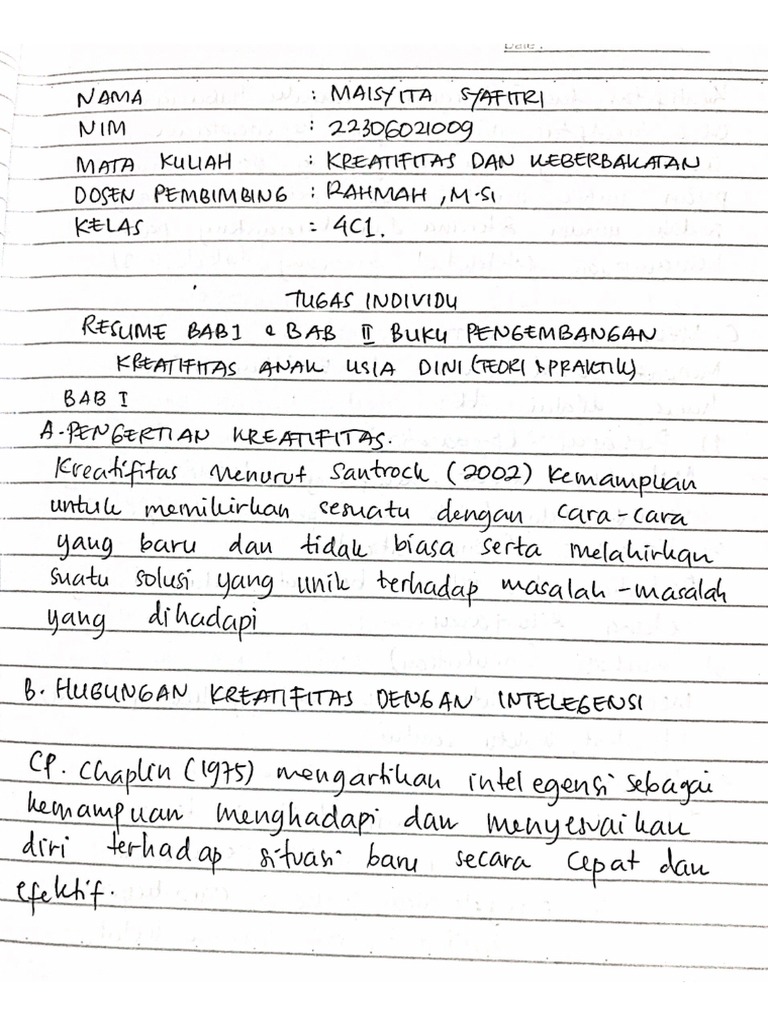 Date :
NAMA : MAISYITA SYAFITRI
NIM : 22306021009
MATA KULIAH : KREATIFITAS DAN KEBERBAKATAN
DOSEN PEMBIMBING : RAHMAH, M.Si
KELAS : 4C1.
TUGAS INDIVIDU
RESUME BAB I & BAB II BUKU PENGEMBANGAN
KREATIFITAS ANAK USIA DINI (TEORI & PRAKTIK)
BAB I
A. PENGERTIAN KREATIFITAS.
Kreatifitas Menurut Santrock (2002) kemampuan
untuk memikirkan sesuatu dengan cara-cara
yang baru dan tidak biasa serta melahirkan
suatu solusi yang unik terhadap masalah-masalah
yang dihadapi
B. HUBUNGAN KREATIFITAS DENGAN INTELEGENSI
CP. Chaplin (1975) mengartikan intelegensi sebagai
kemampuan menghadapi dan menyesuaikan
diri terhadap situasi baru secara cepat dan
efektif.